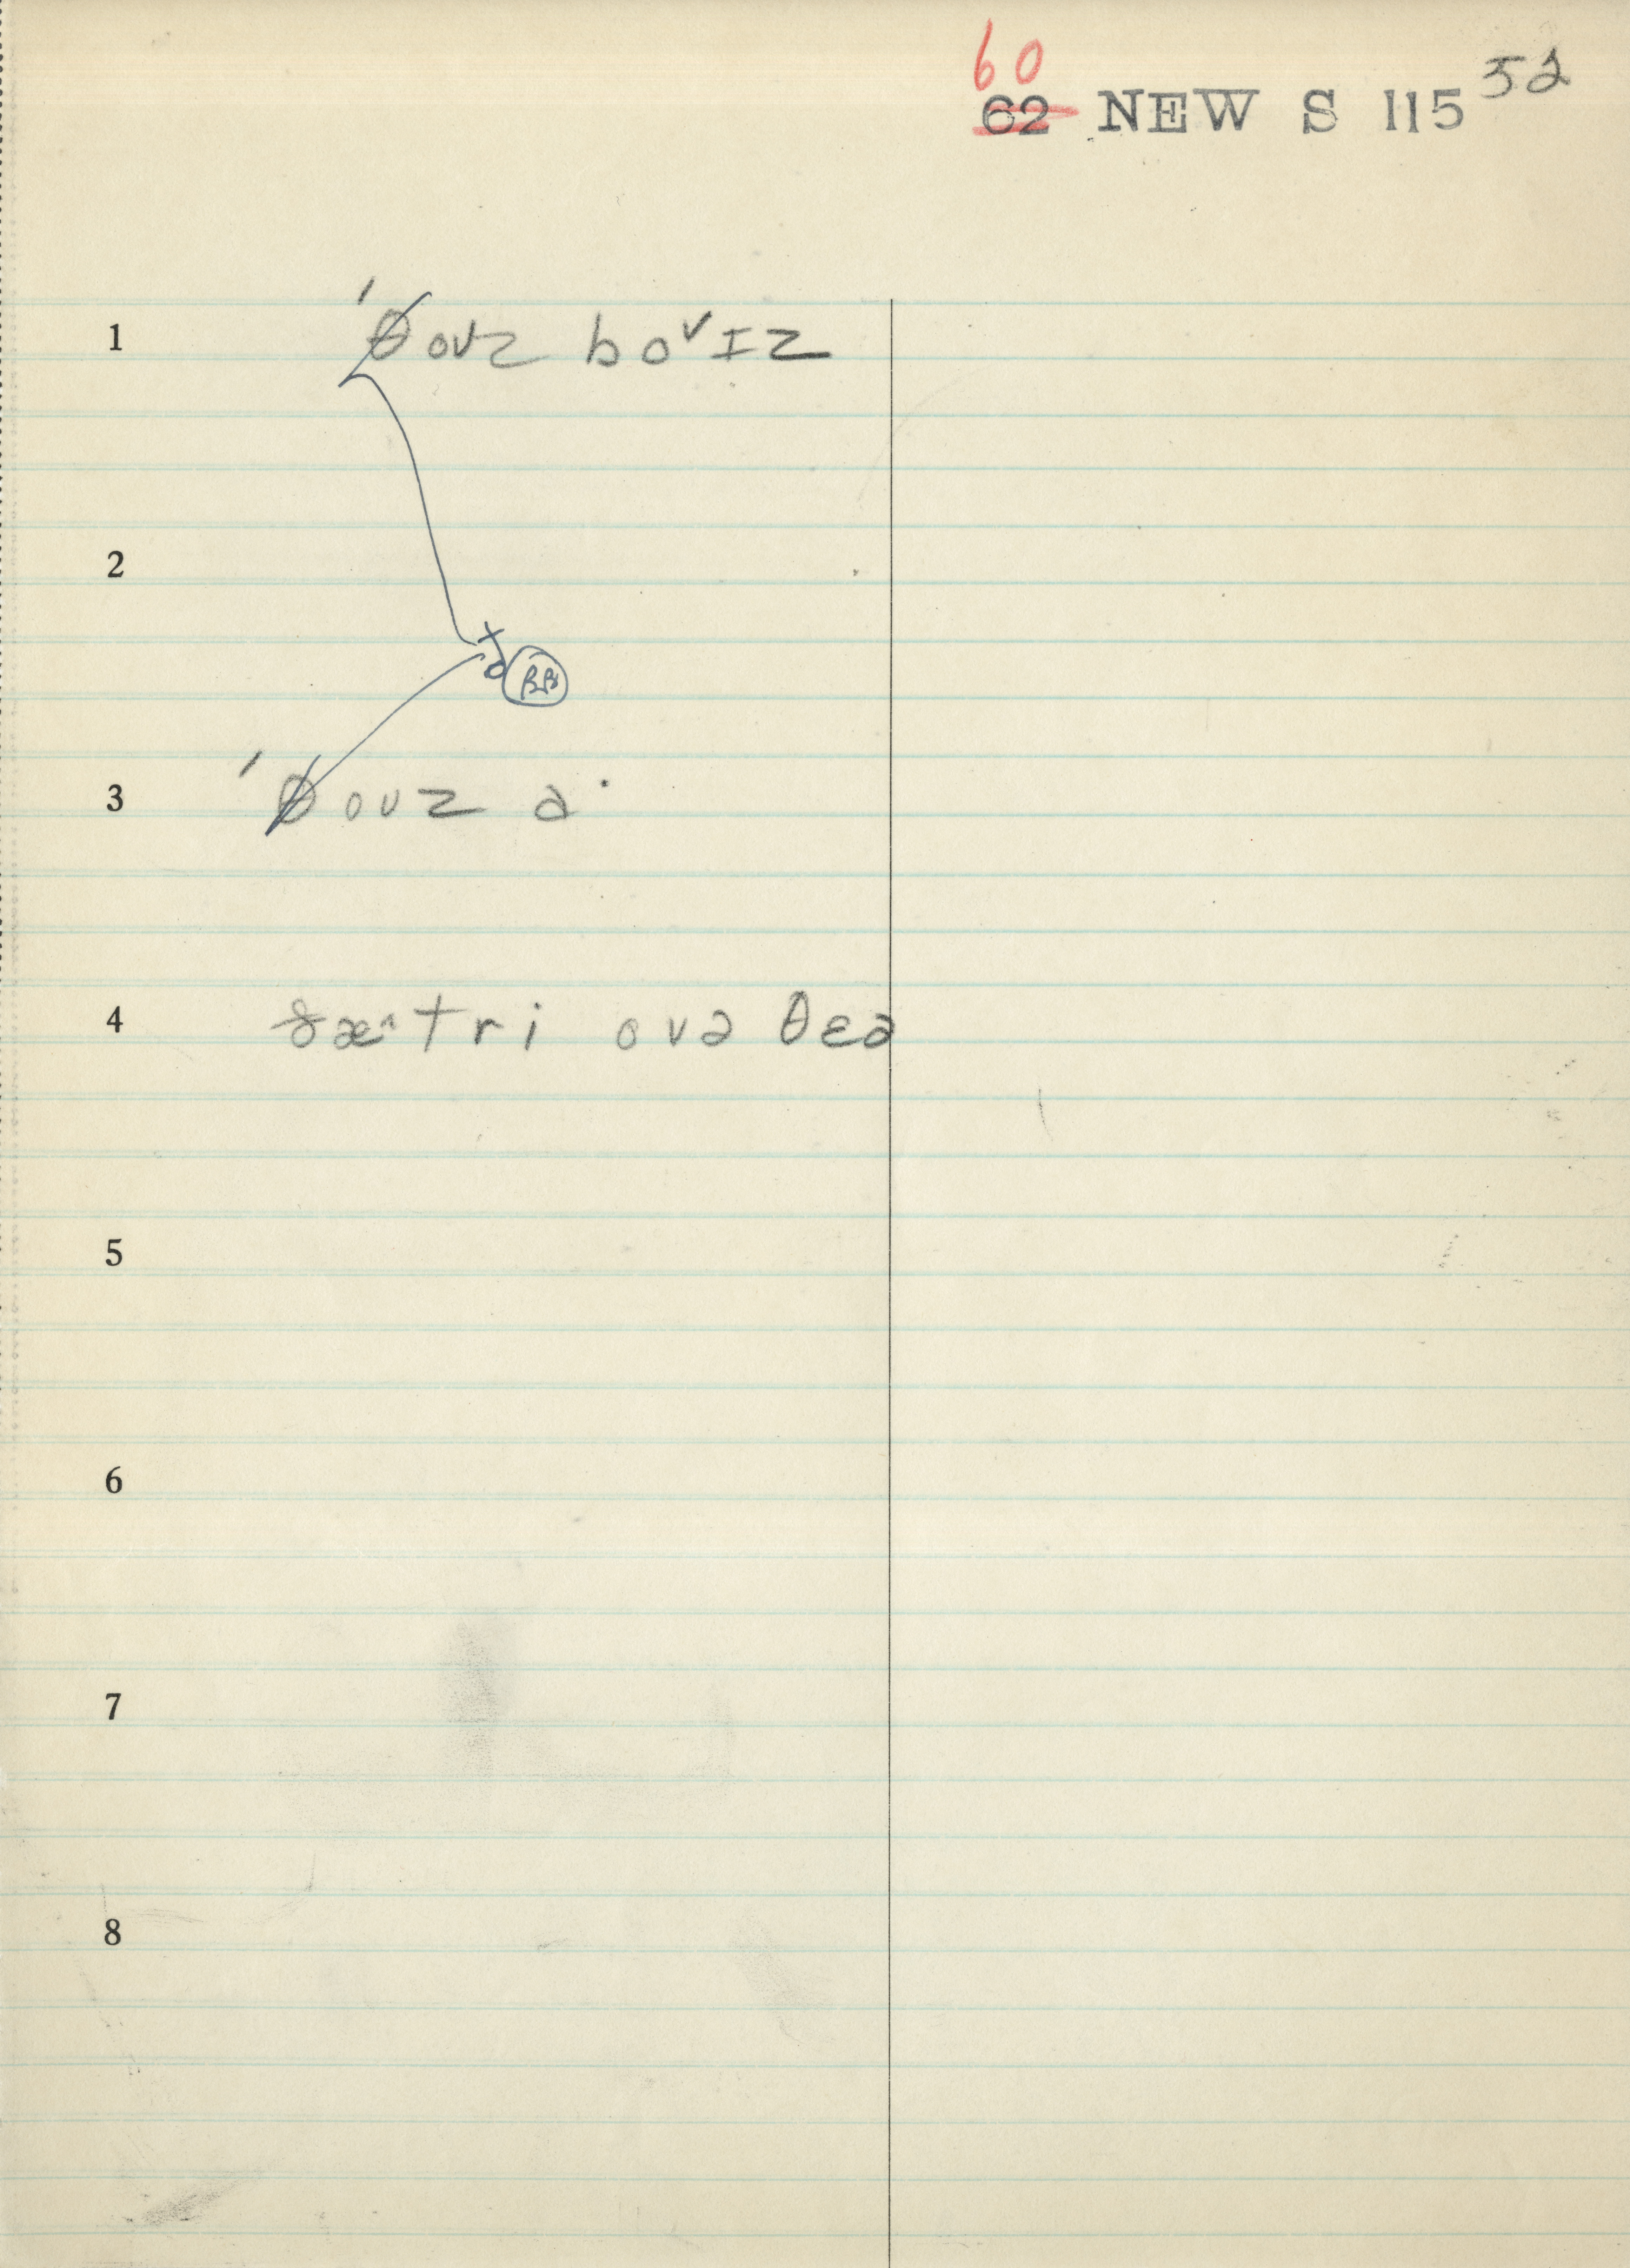 60
62 NEW S 115 52
1 ˈθouz bo^vɪz
2
ð RB
3 ˈθouz ə·
4 ðæ^tri ovə θɛə
5
6
7
8